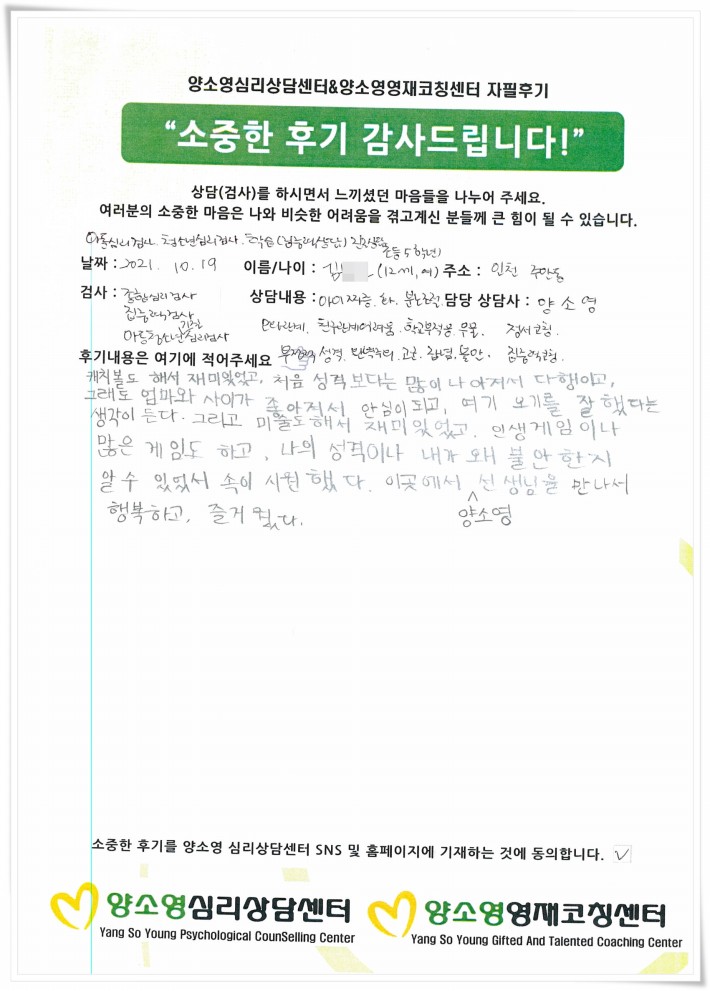 양소영심리상담센터&양소영영재코칭센터 자필후기
“소중한 후기 감사드립니다!”
상담(검사)를 하시면서 느끼셨던 마음들을 나누어 주세요.
여러분의 소중한 마음은 나와 비슷한 어려움을 겪고계신 분들께 큰 힘이 될 수 있습니다.
아동심리검사. 청소년심리검사. 학습(집중력상담)
초등5학년)
날짜 : 2021. 10. 19 이름/나이 : 김 (12세, 여) 주소 : 인천
검사 : 종합심리검사 상담내용 : 아이 짜증. 화. 분노조절. 담당 상담사 : 양소영
집중력검사
기질
대인관계. 친구관계어려움. 학교부적응. 우울. 정서코칭.
아동청소년심리검사
후기내용은 여기에 적어주세요 성격. 불안. 집중력코칭.
캐치볼도 해서 재미있었고, 처음 성격보다는 많이 나아져서 다행이고,
그래도 엄마와 사이가 좋아져서 안심이 되고, 여기 오기를 잘 했다는
생각이 든다. 그리고 미술도해서 재미있었고. 인생게임이나
많은 게임도 하고, 나의 성격이나 내가 왜 불안한지
알 수 있었서 속이 시원했다. 이곳에서 선생님을 만나서
행복하고, 즐거웠다. 양소영
소중한 후기를 양소영 심리상담센터 SNS 및 홈페이지에 기재하는 것에 동의합니다. ✓
양소영심리상담센터 양소영영재코칭센터
Yang So Young Psychological CounSelling Center Yang So Young Gifted And Talented Coaching Center